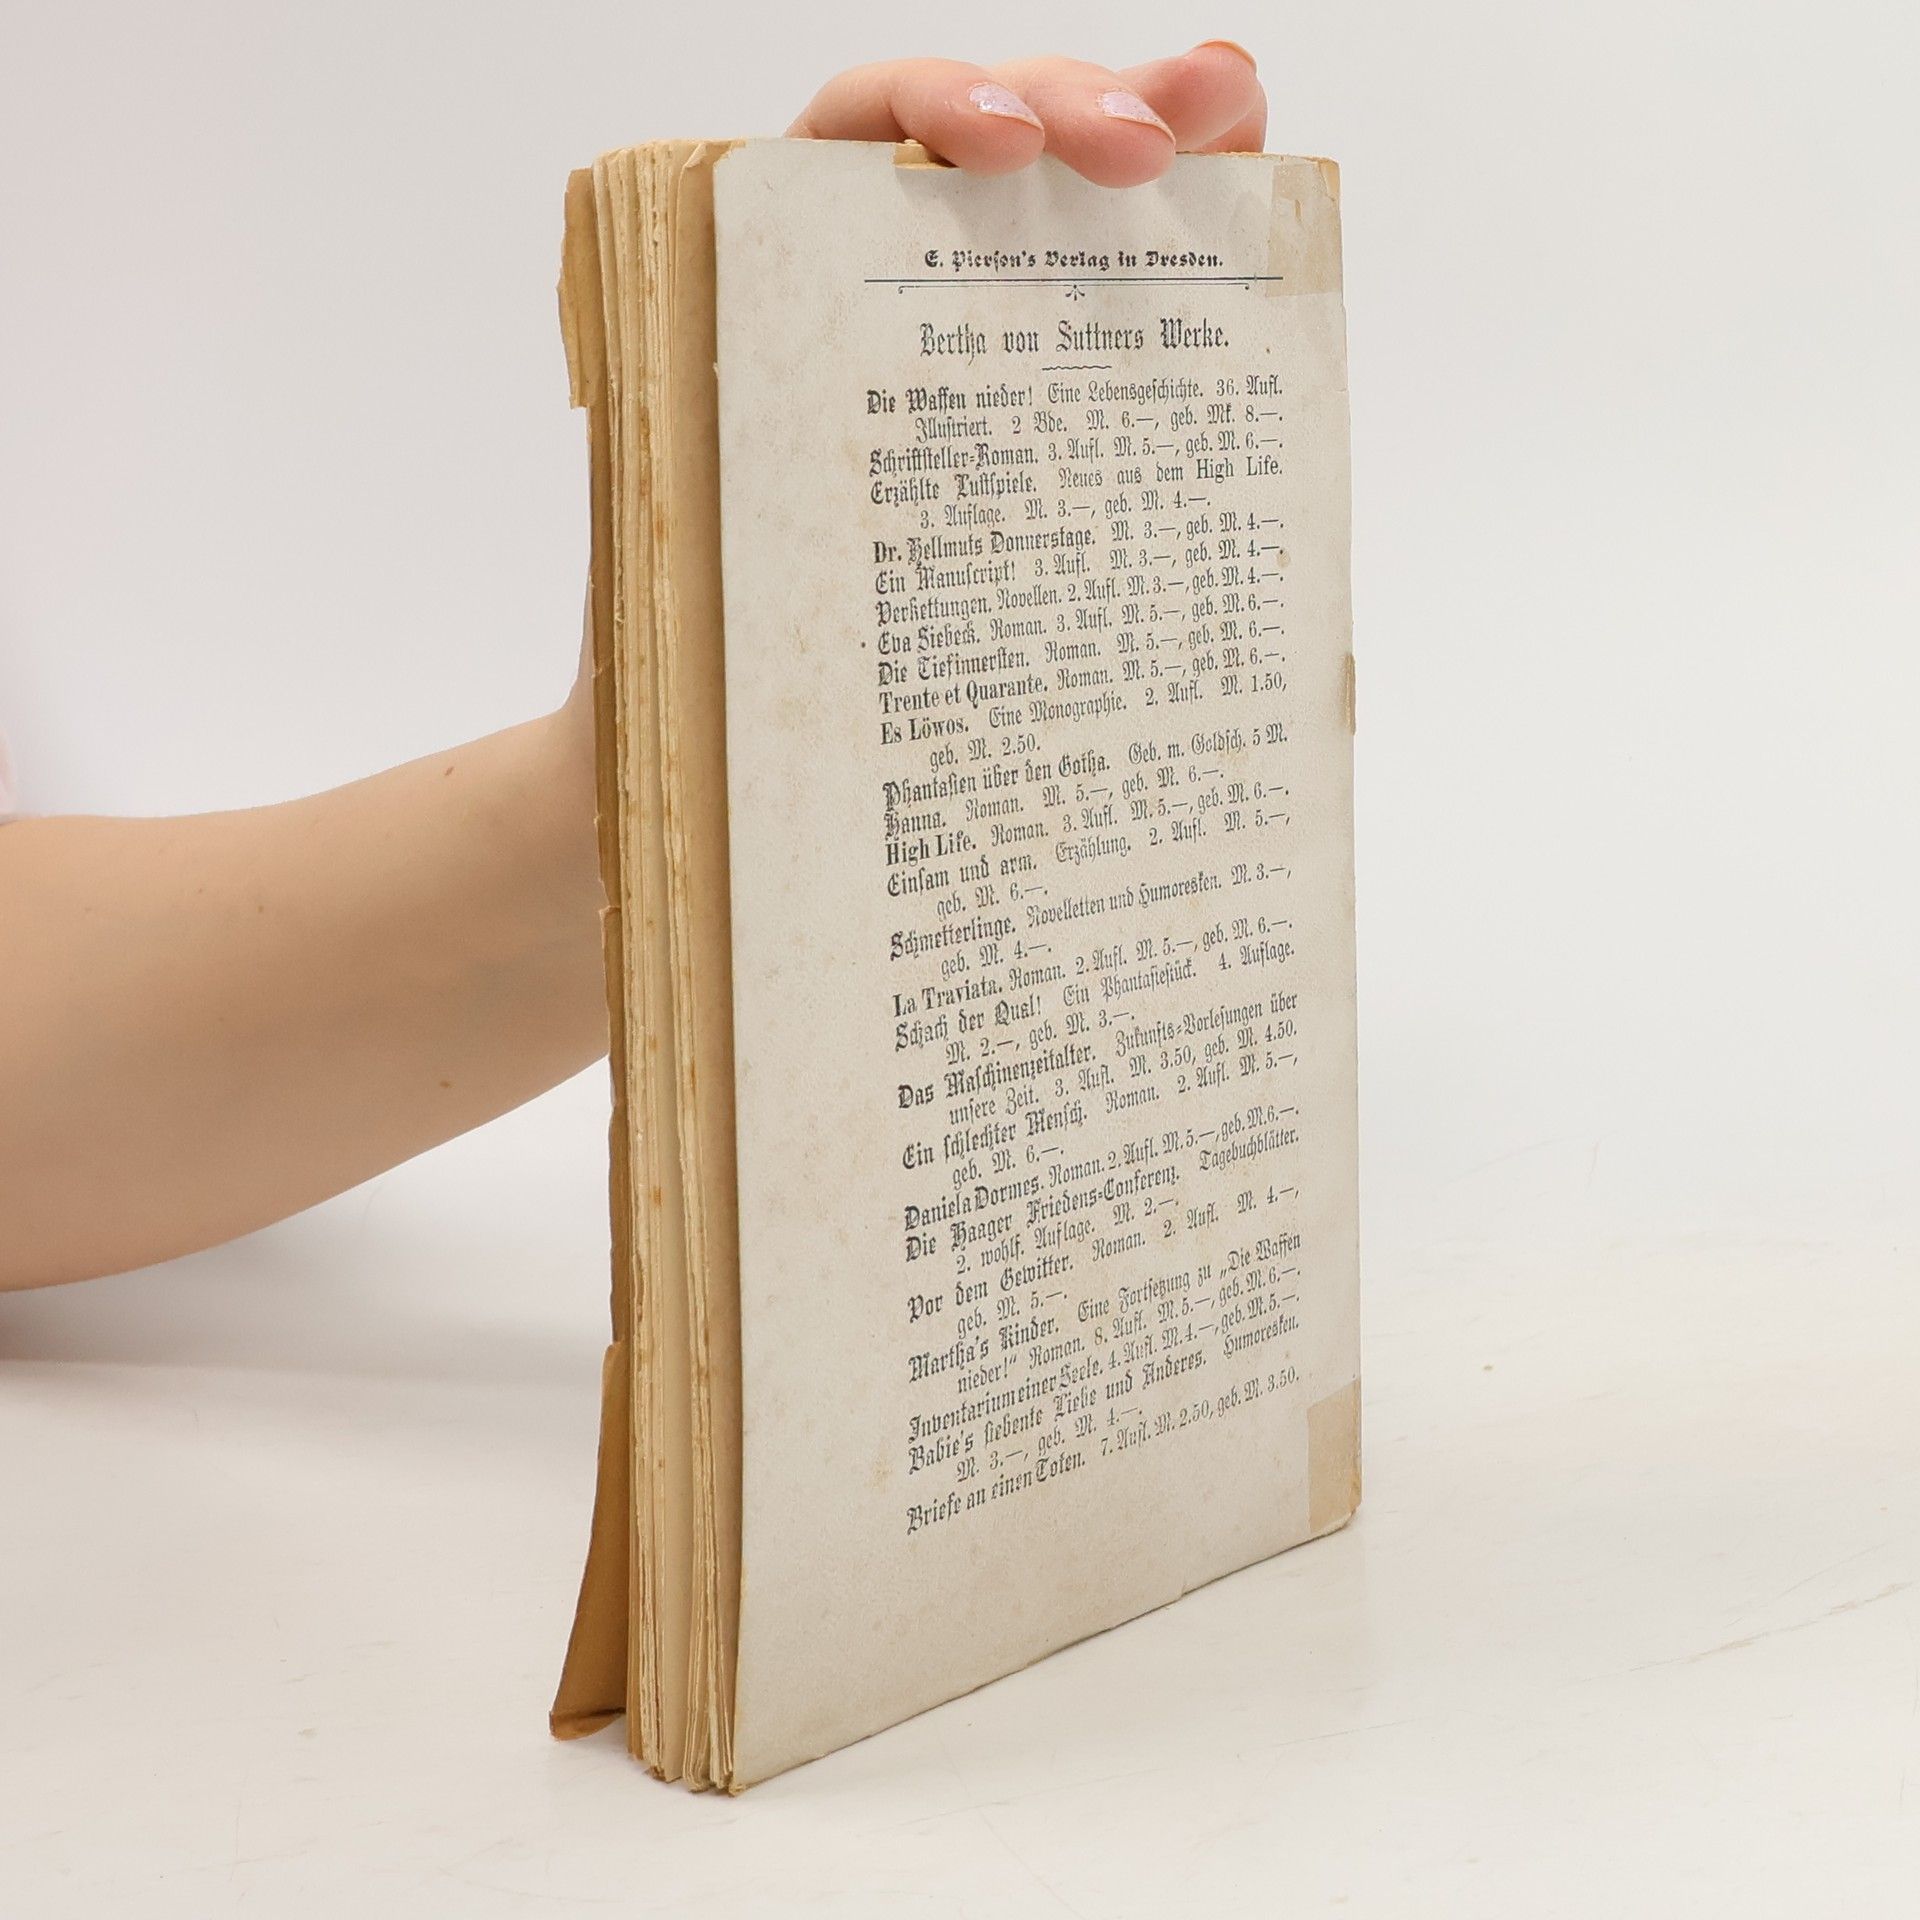 E. Pierson's Verlag in Dresden.
Bertha von Suttners Werke.
Die Waffen nieder! Eine Lebensgeschichte. 36. Aufl.
Illustriert. 2 Bde. M. 6.—, geb. Mk. 8.—.
Schriftsteller=Roman. 3. Aufl. M. 5.—, geb. M. 6.—.
Erzählte Lustspiele. Neues aus dem High Life.
3. Auflage. M. 3.—, geb. M. 4.—.
Dr. Hellmuts Donnerstage. M. 3.—, geb. M. 4.—.
Ein Manuscript! 3. Aufl. M. 3.—, geb. M. 4.—.
Verkettungen. Novellen. 2. Aufl. M. 3.—, geb. M. 4.—.
Eva Siebeck. Roman. 3. Aufl. M. 5.—, geb. M. 6.—.
Die Tiefinnersten. Roman. M. 5.—, geb. M. 6.—.
Trente et Quarante. Roman. M. 5.—, geb. M. 6.—.
Es Löwos. Eine Monographie. 2. Aufl. M. 1.50,
geb. M. 2.50.
Phantasien über den Gotha. Geb. m. Goldsch. 5 M.
Hanna. Roman. M. 5.—, geb. M. 6.—.
High Life. Roman. 3. Aufl. M. 5.—, geb. M. 6.—.
Einsam und arm. Erzählung. 2. Aufl. M. 5.—,
geb. M. 6.—.
Schmetterlinge. Novelletten und Humoresken. M. 3.—,
geb. M. 4.—.
La Traviata. Roman. 2. Aufl. M. 5.—, geb. M. 6.—.
Schach der Qual! Ein Phantasiestück. 4. Auflage.
M. 2.—, geb. M. 3.—.
Das Maschinenzeitalter. Zukunfts=Vorlesungen über
unsere Zeit. 3. Aufl. M. 3.50, geb. M. 4.50.
Ein schlechter Mensch. Roman. 2. Aufl. M. 5.—,
geb. M. 6.—.
Daniela Dormes. Roman. 2. Aufl. M. 5.—, geb. M. 6.—.
Die Haager Friedens=Conferenz. Tagebuchblätter.
2. wohlf. Auflage. M. 2.—.
Vor dem Gewitter. Roman. 2. Aufl. M. 4.—,
geb. M. 5.—.
Martha's Kinder. Eine Fortsetzung zu „Die Waffen
nieder!“ Roman. 8. Aufl. M. 5.—, geb. M. 6.—.
Inventarium einer Seele. 4. Aufl. M. 4.—, geb. M. 5.—.
Babie's siebente Liebe und Anderes. Humoresken.
M. 3.—, geb. M. 4.—.
Briefe an einen Toten. 7. Aufl. M. 2.50, geb. M. 3.50.